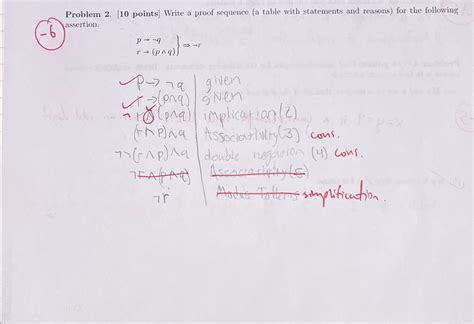 Problem 2. [10 points] Write a proof sequence (a table with statements and reasons) for the following
assertion.
-6
p → ¬q
r → (p ∧ q) } ⇒ ¬r
p → ¬q given
r → (p∧q) given
¬r (p∧q) implication (2)
(r ∧ p) ∧ q Associativity (3) cons.
¬¬(r ∧ p) ∧ q double negation (4) cons.
¬r ∧ (p ∧ q) Associativity (5)
¬r Modus Tollens simplification.